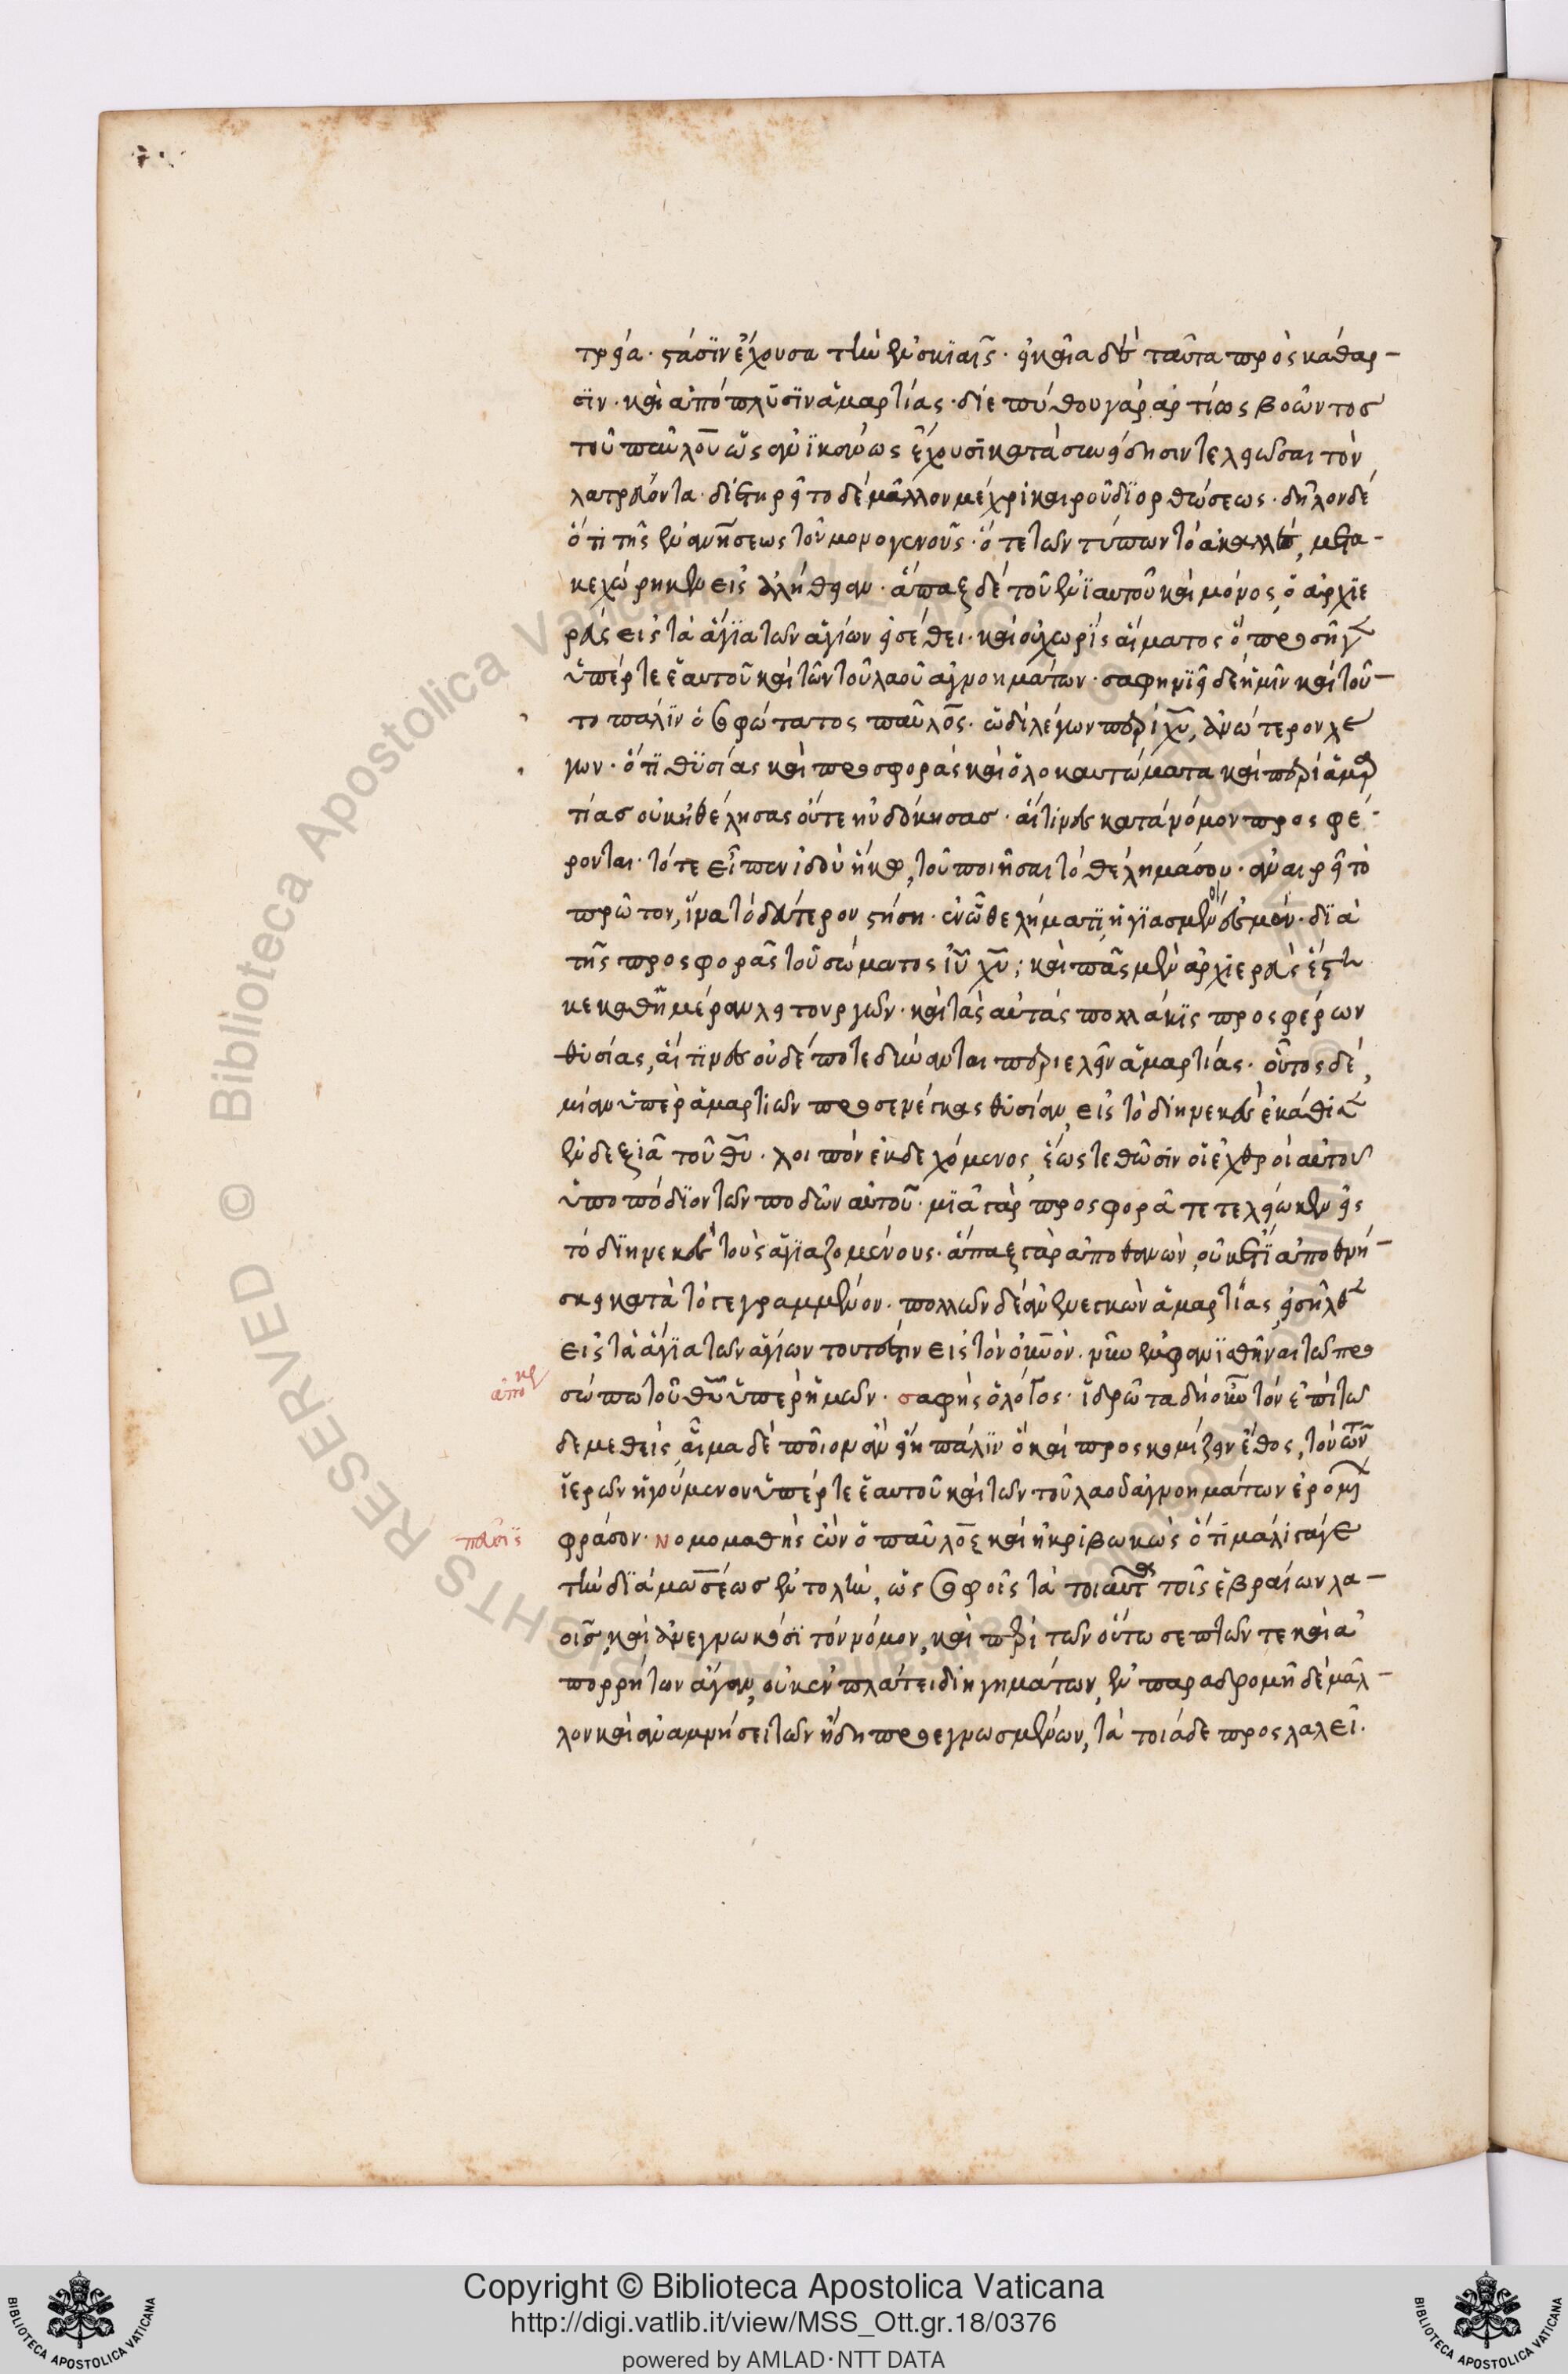 τρεία· στάσιν ἔχουσα τὴν ἐν σκιαῖς· εἰκαῖα δὲ ταῦτα πρὸς κάθαρ-
σιν· καὶ ἀπόπλυσιν ἁμαρτίας· διεπύθου γὰρ ἀρτίως βοῶντος
τοῦ παύλου ὡς οὐχ ἱκανῶς ἔχουσι κατὰ συνείδησιν τελειῶσαι τὸν
λατρεύοντα· διετηρεῖτο δὲ μᾶλλον μέχρι καιροῦ διορθώσεως· δῆλον δὲ
ὅτι τῆς ἐνανθρωπήσεως τοῦ μονογενοῦς· ὅτε τῶν τύπων τὸ ἀκαλλὲς, μετα-
κεχώρηκεν εἰς ἀλήθειαν· ἅπαξ δὲ τοῦ ἐνιαυτοῦ καὶ μόνος, ὁ ἀρχιε
ρεὺς εἰς τὰ ἅγια τῶν ἁγίων εἰσέθει· καὶ οὐ χωρὶς αἵματος ὃ, προσῆγε
ὑπέρ τε ἑαυτοῦ καὶ τῶν τοῦ λαοῦ ἀγνοημάτων· σαφηνιεῖ δὲ ἡμῖν καὶ τοῦ-
το πάλιν ὁ σοφώτατος παῦλος· ὡδὶ λέγων περὶ χυ, ἀνώτερον λέ
γων· ὅτι θυσίας καὶ προσφορὰς καὶ ὁλοκαυτώματα καὶ περὶ ἁμαρ
τίας οὐκ ἠθέλησας οὔτε ηὐδόκησας· αἵτινες κατὰ νόμον προσφέ-
ρονται· τότε εἶπεν ἰδοὺ ἥκω, τοῦ ποιῆσαι τὸ θέλημά σου· ἀναιρεῖ τὸ
πρῶτον, ἵνα τὸ δεύτερον στήσῃ· ἐν ᾧ θελήματι, ἡγιασμένοι ἐσμέν· διὰ
τῆς προσφορᾶς τοῦ σώματος ιυ χυ; καὶ πᾶς μὲν ἀρχιερεὺς ἕστη
κε καθ' ἡμέραν λειτουργῶν· καὶ τὰς αὐτὰς πολλάκις προσφέρων
θυσίας, αἵτινες οὐδέποτε δύνανται περιελεῖν ἁμαρτίας· οὗτος δὲ,
μίαν ὑπὲρ ἁμαρτιῶν προσενέγκας θυσίαν, εἰς τὸ διηνεκὲς ἐκάθισεν
ἐν δεξιᾷ τοῦ θυ· λοιπὸν ἐκδεχόμενος, ἕως τεθῶσιν οἱ ἐχθροὶ αὐτοῦ
ὑποπόδιον τῶν ποδῶν αὐτοῦ· μιᾷ γὰρ προσφορᾷ τετελείωκεν εἰς
τὸ διηνεκὲς τοὺς ἁγιαζομένους· ἅπαξ γὰρ ἀποθανὼν, οὐκέτι ἀποθνή-
σκει κατὰ τὸ γεγραμμένον· πολλῶν δὲ ἀνενεγκὼν ἁμαρτίας, εἰσῆλθεν
εἰς τὰ ἅγια τῶν ἁγίων τουτέστιν εἰς τὸν οὐνον· νῦν ἐμφανισθῆναι τῷ προ
σώπῳ τοῦ θυ ὑπὲρ ἡμῶν· σαφὴς ὁ λόγος· ἱδρῶτα
δε μεθεὶς, αἷμα δὲ ποῖον ἂν εἴη πάλιν ὃ καὶ προσκομίζειν ἔθος, τὸν τῶν
ἱερῶν ἡγούμενον ὑπέρ τε ἑαυτοῦ καὶ τῶν τοῦ λαοῦ ἀγνοημάτων ἐρομένῳ
φράσον· νομομαθὴς ὢν ὁ παῦλος καὶ ἠκριβωκὼς ὅτι μάλιστά γε
τὴν διὰ μωσέως ἐντολὴν, ὡς σοφοῖς τὰ τοιαῦτα τοῖς ἑβραίων λα-
οῖς, καὶ ἀνεγνωκόσι τὸν νόμον, καὶ περὶ τῶν οὕτω σεπτῶν τε καὶ ἀ
πορρήτων ἄγαν, οὐκ ἐν πλάτει διηγημάτων, ἐν παραδρομῇ δὲ μᾶλ-
λον καὶ ἀναμνήσει τῶν ἤδη προεγνωσμένων, τὰ τοιάδε προσλαλεῖ.
ἀπόκρ
παλλάδις
Copyright © Biblioteca Apostolica Vaticana
http://digi.vatlib.it/view/MSS_Ott.gr.18/0376
powered by AMLAD·NTT DATA
BIBLIOTECA APOSTOLICA VATICANA
BIBLIOTECA APOSTOLICA VATICANA